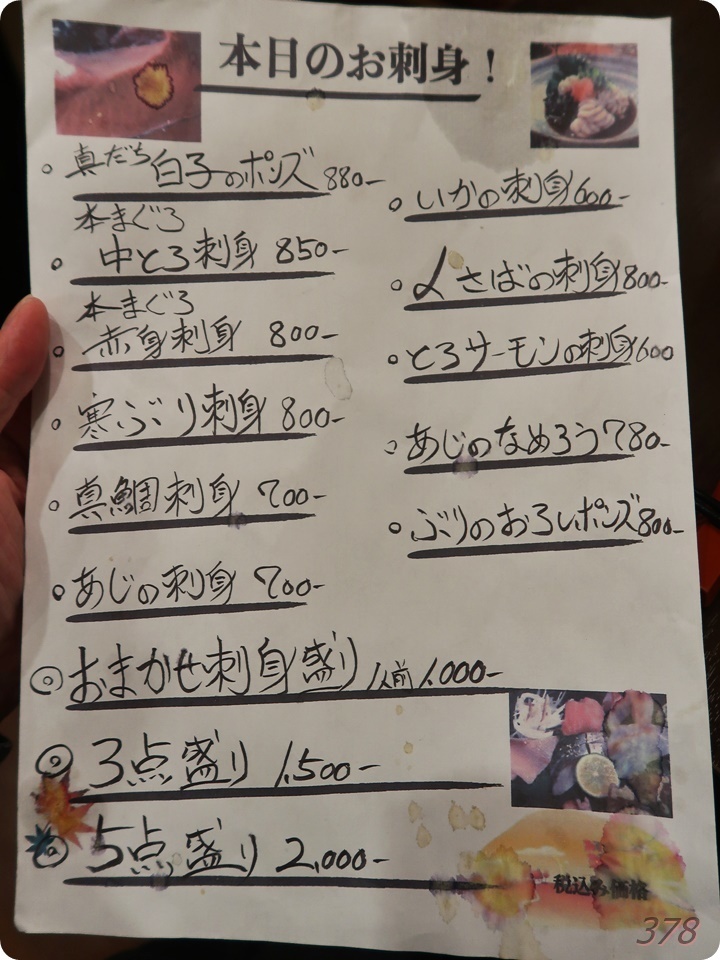 本日のお刺身！
真だち白子のポンズ 880-
本まぐろ
中とろ刺身 850-
本まぐろ
赤身刺身 800-
寒ぶり刺身 800-
真鯛刺身 700-
あじの刺身 700-
いかの刺身 600-
〆さばの刺身 800-
とろサーモンの刺身 600
あじのなめろう 780-
ぶりのおろしポンズ 800-
おまかせ刺身盛り 1人前 1,000-
3点盛り 1,500-
5点盛り 2,000-
税込み価格
378